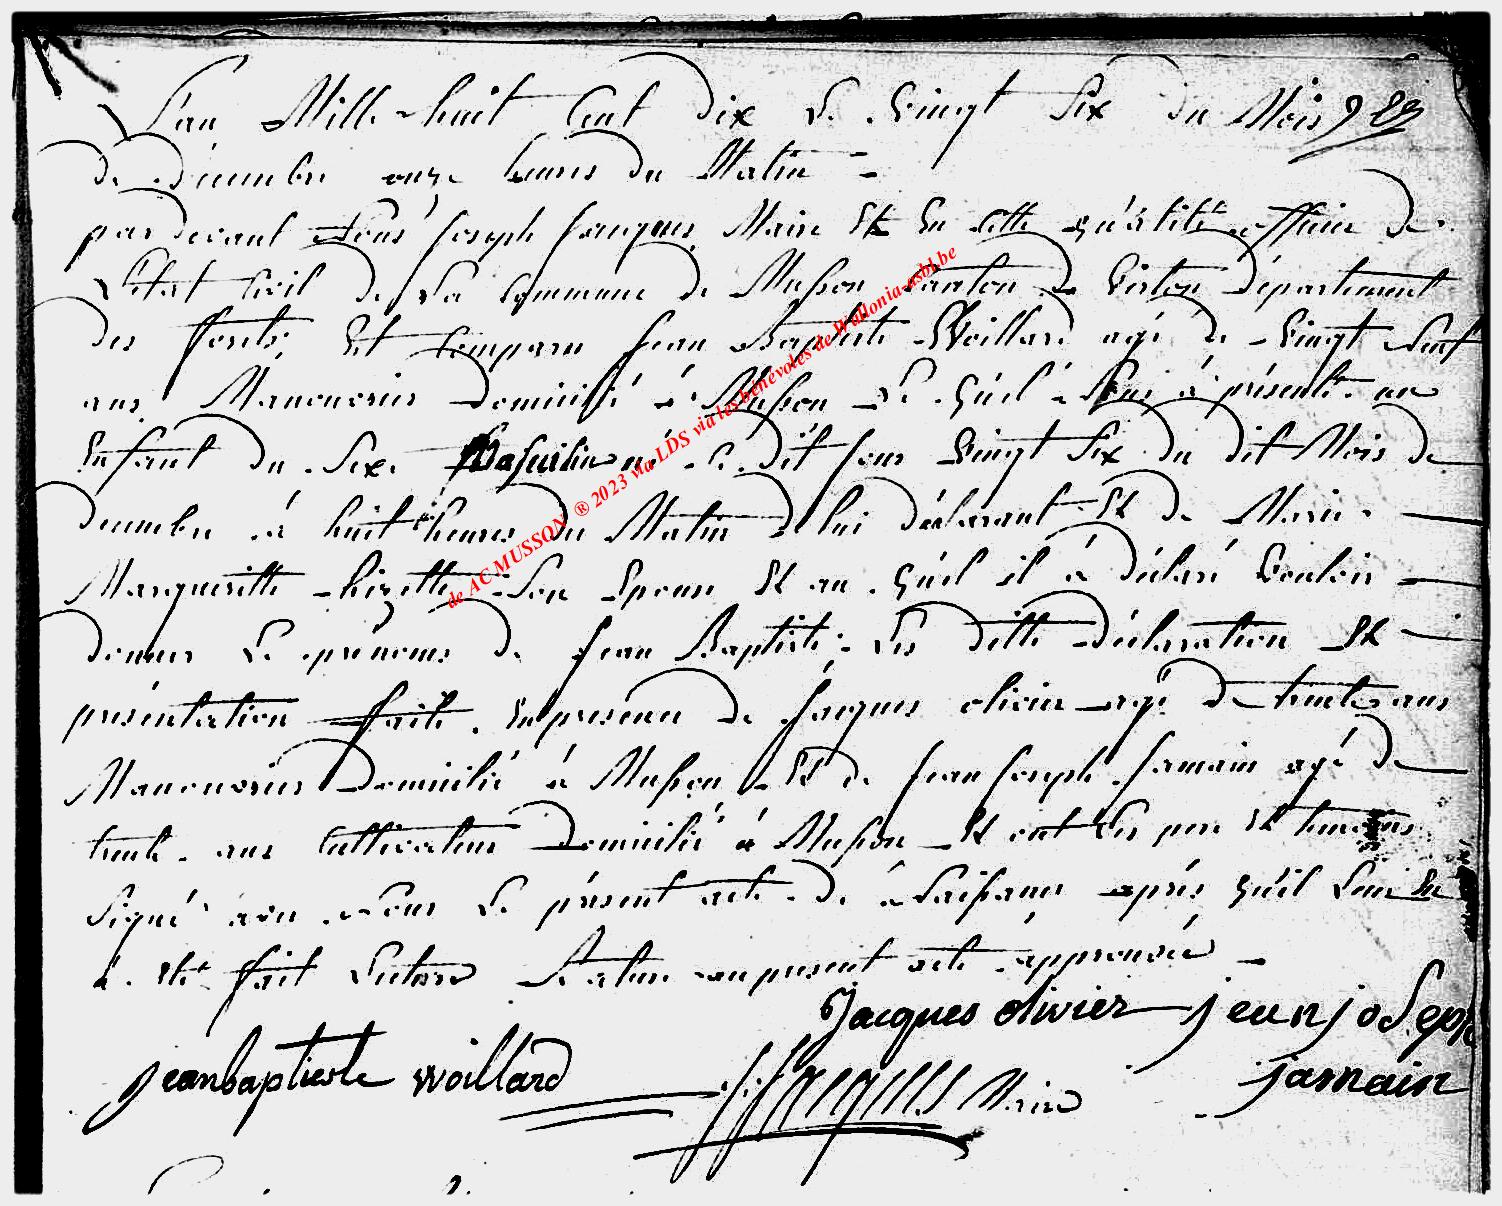 L'an Mille huit Cent dix Le Vingt Six du Mois
de décembre onze heures du Matin =
pardevant Nous Joseph Jacques Maire Et En cette qu'alité officier de
L'état Civil de La Commune de Musson Canton de Virton département
des forêts, Est Comparu Jean Baptiste Woillard agé de Vingt Neuf
ans Manouvrier Domicilié à Musson Le quel à Nous à présenté un
Enfant du Sexe Masculin né Ce dit jour Vingt Six du dit Mois de
décembre à huit heures du Matin de lui déclarant Et de Marie
Margueritte hizette Son Epouse Et au quel il à déclaré Vouloir
donner Le prénoms de Jean Baptiste, Les ditte déclaration Et
présentation faite En présence de Jacques olivier agé de trente ans
Manouvrier Domicilié à Musson Et de Jean Joseph Jamain agé de
trente ans Cultivateur Domicilié à Musson Et ont Les pere Et temoins
Signé avec Nous Le présent acte de Naissance après qu'il Leur En
à Eté fait Lecture La rature au present acte approuvée
Jacques olivier jean joseph
jeanbaptieste woillard J: Jacques Maire jamain
de AC MUSSON ® 2023 via LDS via les bénévoles de Wallonia-asbl.be